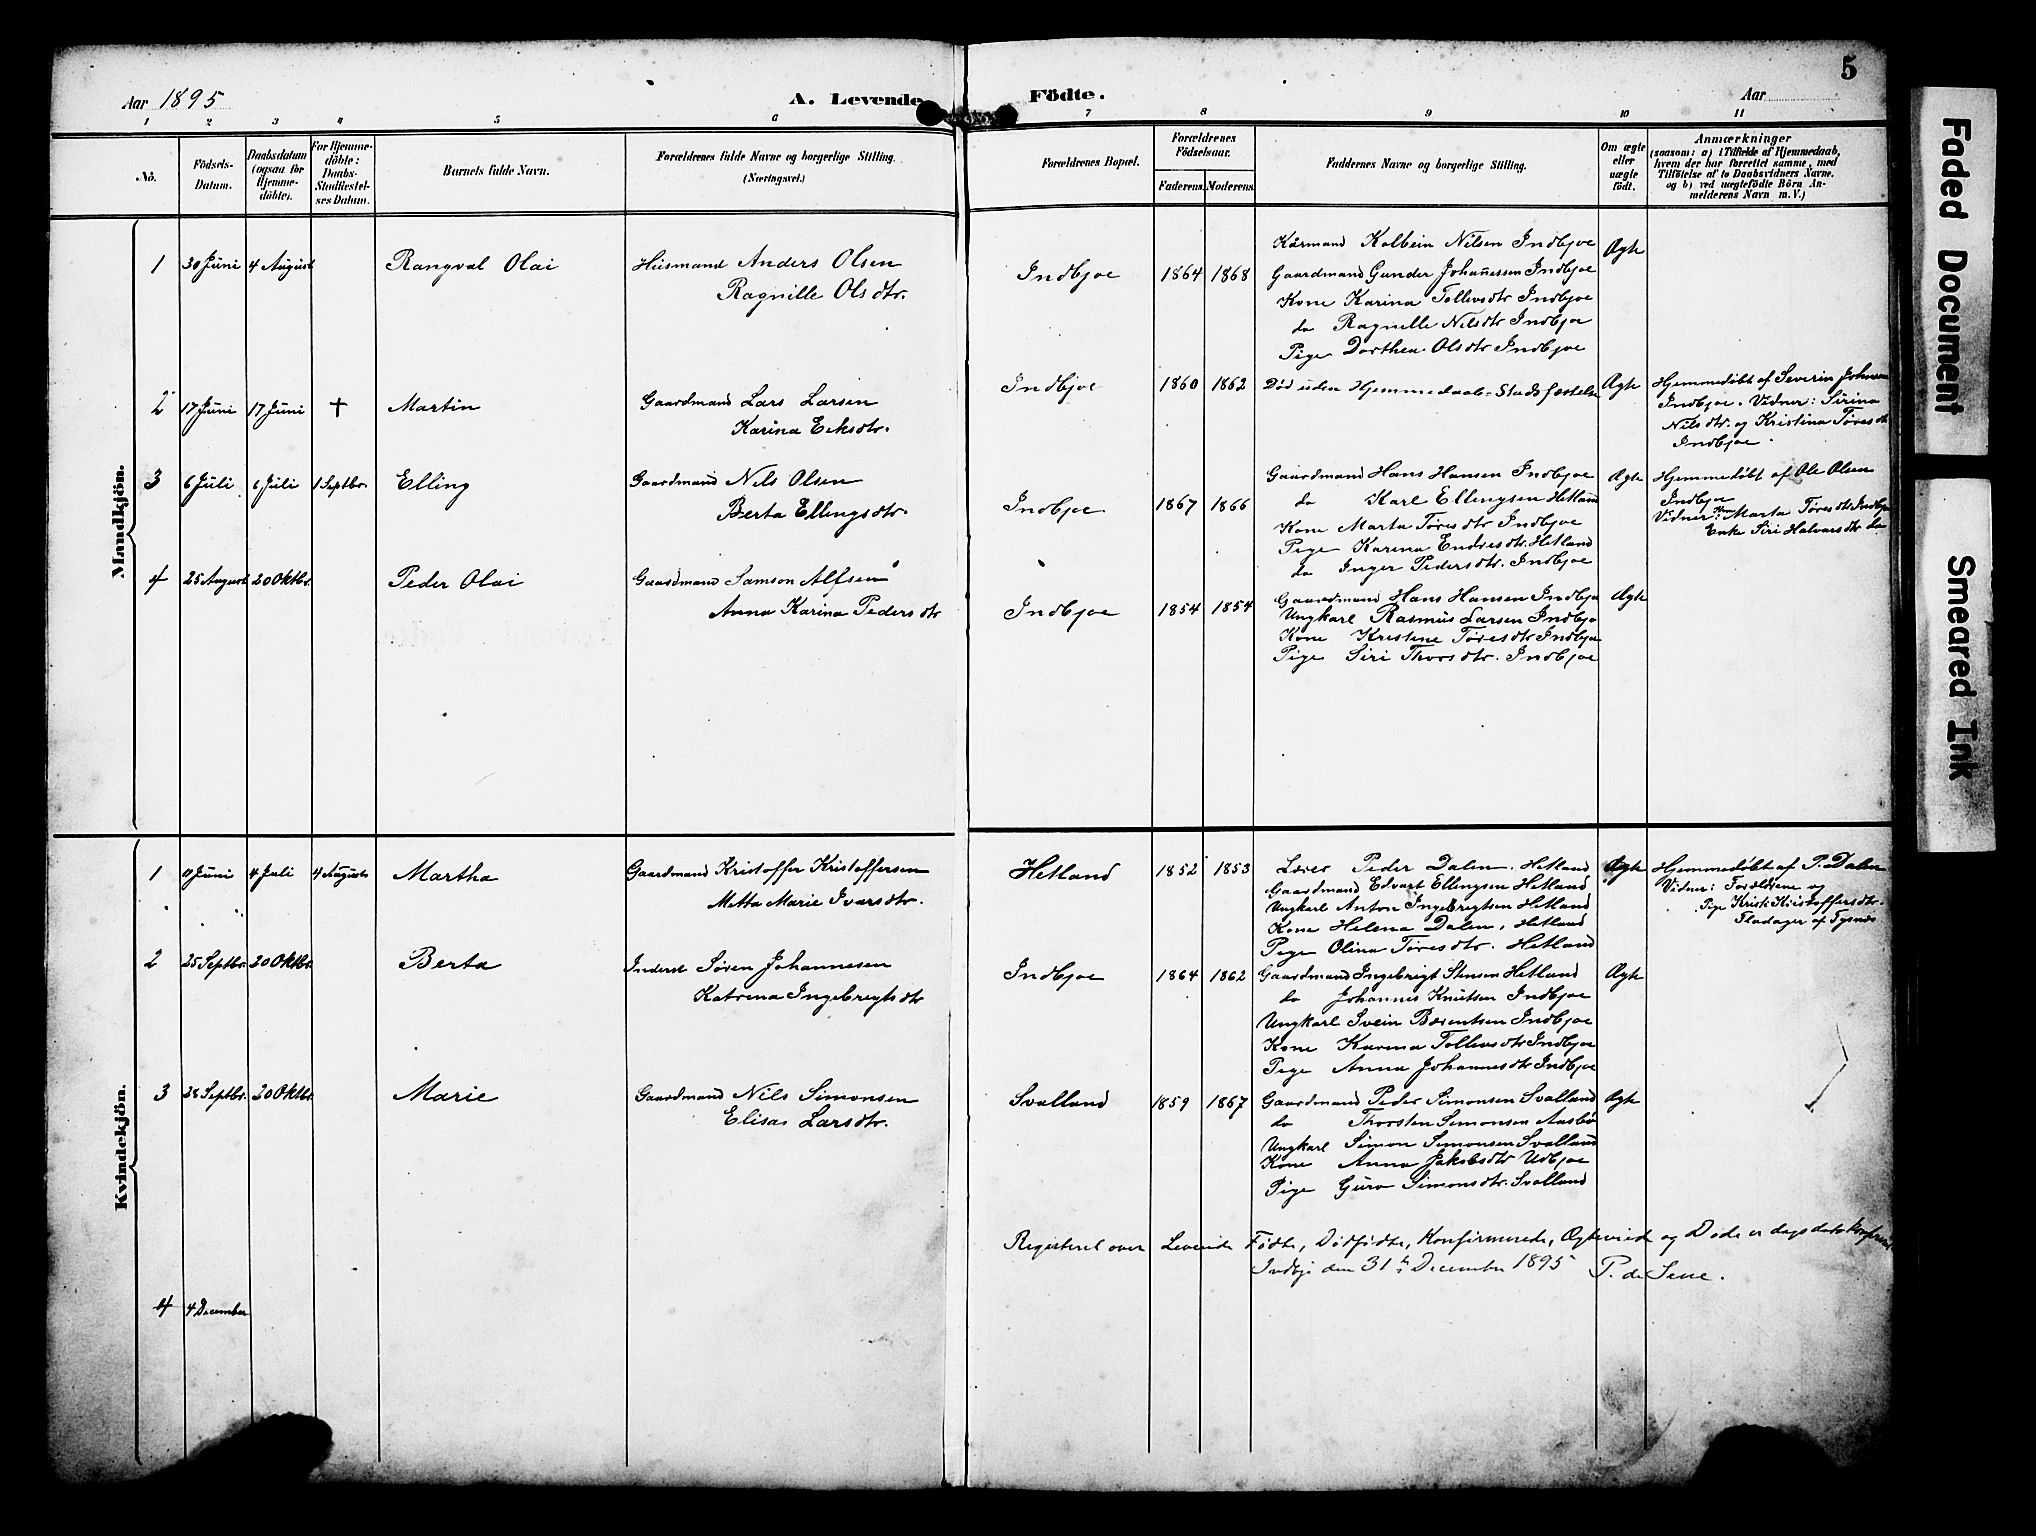 5
Aar 1895
A. Levende
Födte.
Aar
1 2 3 4 5 6 7 8 9 10 11
No.
Födsels-
Datum.
Daabsdatum
(ogsaa for
Hjemme-
döbte).
For Hjemme-
döbte:
Daabs-
Stadfæstel-
ses Datum.
Barnets fulde Navn.
Forældrenes fulde Navne og borgerlige Stilling.
(Næringsvei.)
Forældrenes Bopæl.
Forældrenes
Födselsaar.
Faderens. Moderens.
Faddernes Navne og borgerlige Stilling.
Om ægte
eller
uægte
födt.
Anmærkninger
(saasom: a) i Tilfælde af Hjemmedaab,
hvem der har forrettet samme, med
Tilföielse af to Daabsvidners Navne,
og b) ved uægtefödte Börn An-
melderens Navn m. V.)
Mandkjön.
1 30 Juni 4 August Rangval Olai Husmand Anders Olsen
Ragnille Olsdtr.
Indbjoe 1864 1868
Kårmand Kolbein Nilsen Indbjoe Ægte
Gaardmand Gunder Johanessen Indbjoe
Kone Karina Tollevsdtr Indbjoe
do Ragnille Nilsdtr Indbjoe
Pige Dorthea Olsdtr Indbjoe
2 17 Juni 17 Juni † Martin Gaardmand Lars Larsen
Karina Eriksdtr.
Indbjoe 1860 1862 Død uden Hjemmedaabs-Stadsfæstelse Ægte
Hjemmedøbt af Severin Johnsen
Indbjoe. Vidner: Sirina
Nilsdtr. og Kristina Tøresdtr
Indbjoe.
3 6 Juli 6 Juli 1 Septbr. Elling Gaardmand Nils Olsen
Berta Ellingsdtr.
Indbjoe 1867 1866
Gaardmand Hans Hansen Indbjoe Ægte
do Karl Ellingsen Hetland
Kone Marta Tøresdtr Indbjoe
Pige Karina Endresdtr. Hetland
do Inger Pedersdtr. Indbjoe
Hjemmedøbt af Ole Olsen
Indbjoe
Vidner: Kone Marta Tøresdtr Indbjoe
Enke Siri Halvarsdtr do
4 25 August 20 Oktbr. Peder Olai Gaardmand Samson Alfsen
Anna Karina Pedersdtr
Indbjoe 1854 1854
Gaardmand Hans Hansen Indbjoe Ægte
Ungkarl Rasmus Larsen Indbjo
Kone Kristine Tøresdtr Indbjoe
Pige Siri Thorsdtr. Indbjoe
Kvindekjön.
1 Juni 4 Juli 4 August Martha Gaardmand Kristoffer Kristoffersen
Metta Marie Ivarsdtr.
Hetland 1852 1853
Lærer Peder Dalen. Hetland Ægte
Gaardmand Edvart Ellingsen Hetland
Ungkarl Anton Ingebrigtsen Hetland
Kone Helena Dalen, Hetland
Pige Olina Tøresdtr. Hetland
Hjemmedøbt af P. Dalen
Vidner: Forældrene og
Pige Kristi Kristoffersdtr.
Fladager af Tysnæs
2 25 Septbr. 20 Oktbr. Berta Inderst Søren Johannesen
Katrina Ingebregtsdtr
Indbjoe 1864 1862
Gaardmand Ingebregt Stensen Hetland Ægte
do Johannes Knutsen Indbjoe
Ungkarl Svein Bærentsen Indbjoe
Kone Karina Tollevsdtr Indbjoe
Pige Anna Johannesdtr Indbjoe
3 28 Septbr. 20 Oktbr. Marie Gaardmand Nils Simonsen
Elisa Larsdtr.
Svalland 1859 1867
Gaardmand Peder Simonsen Svalland Ægte
do Thorsten Simonsen Aasbø
Ungkarl Simon Simonsen Svalland
Kone Anna Jakobsdtr Udbjoe
Pige Guro Simonsdtr. Svalland
Registeret over Levende Fødte, Dødfødte, Konfirmerede, Ægteviede og Døde er dags dato
Indbjo den 31te December 1895 P. de Seue.
4 4 December
Faded Document
Smeared Ink